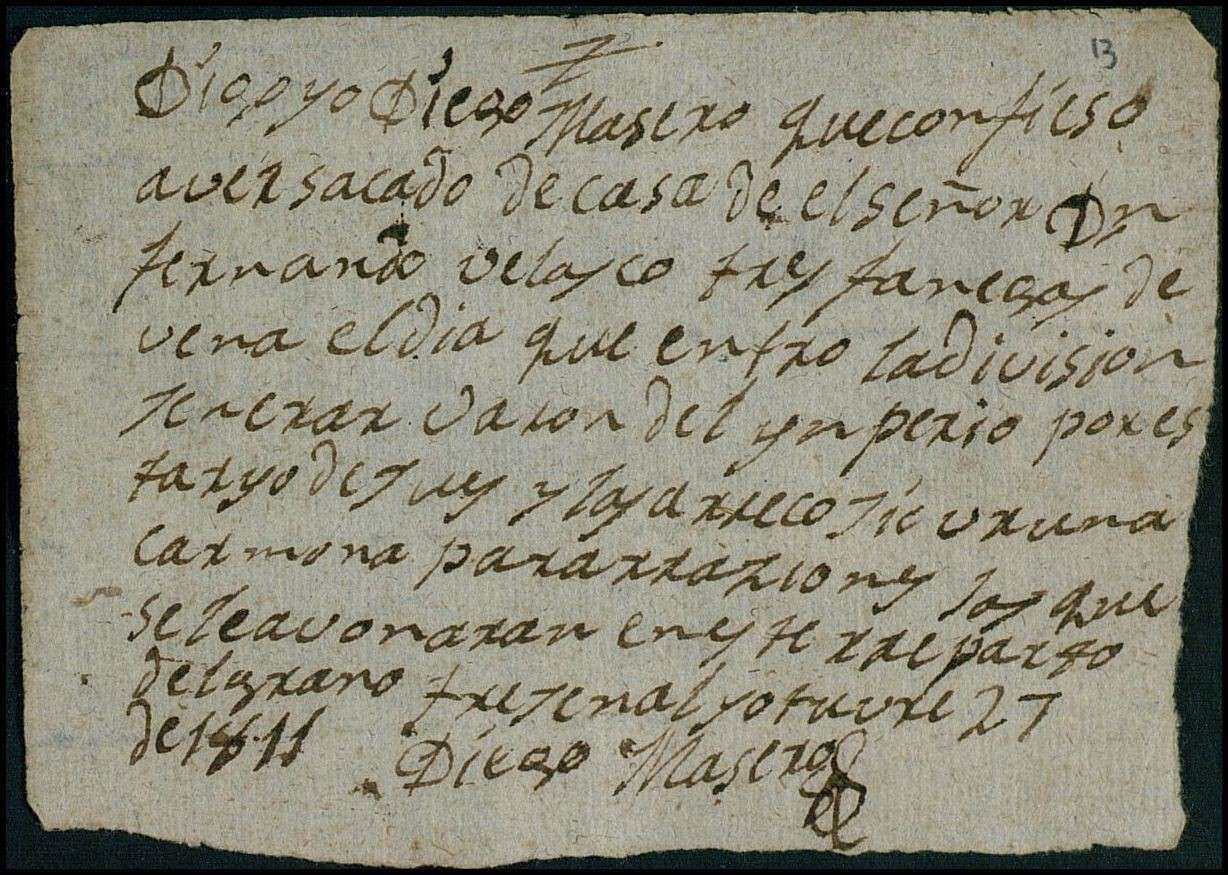 13
Digo yo Diego Masero que confieso
aver sacado de casa de el señor Dn
fernando velasco tres fanegas de
vena el dia que entro la division
jenerar varon del ynperio por es
tar yo de jues y las arrecojio bruna
carmona para rraziones las que
se le avonaran en este rreparto
del grano frejenal y otuvre 27
de 1811 Diego Masero